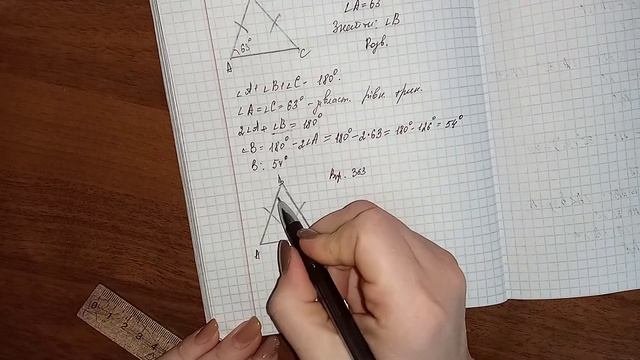 ∠A=63°
Знайти: ∠B
Розв.
63°
A C
∠A+∠B+∠C=180°.
∠A=∠C=63° - власт. рівн. трик.
2∠A+∠B=180°
∠B=180°-2∠A=180°-2·63=180°-126°=54°
В: 54°
B Впр. 363
A
0 1 2 3 4